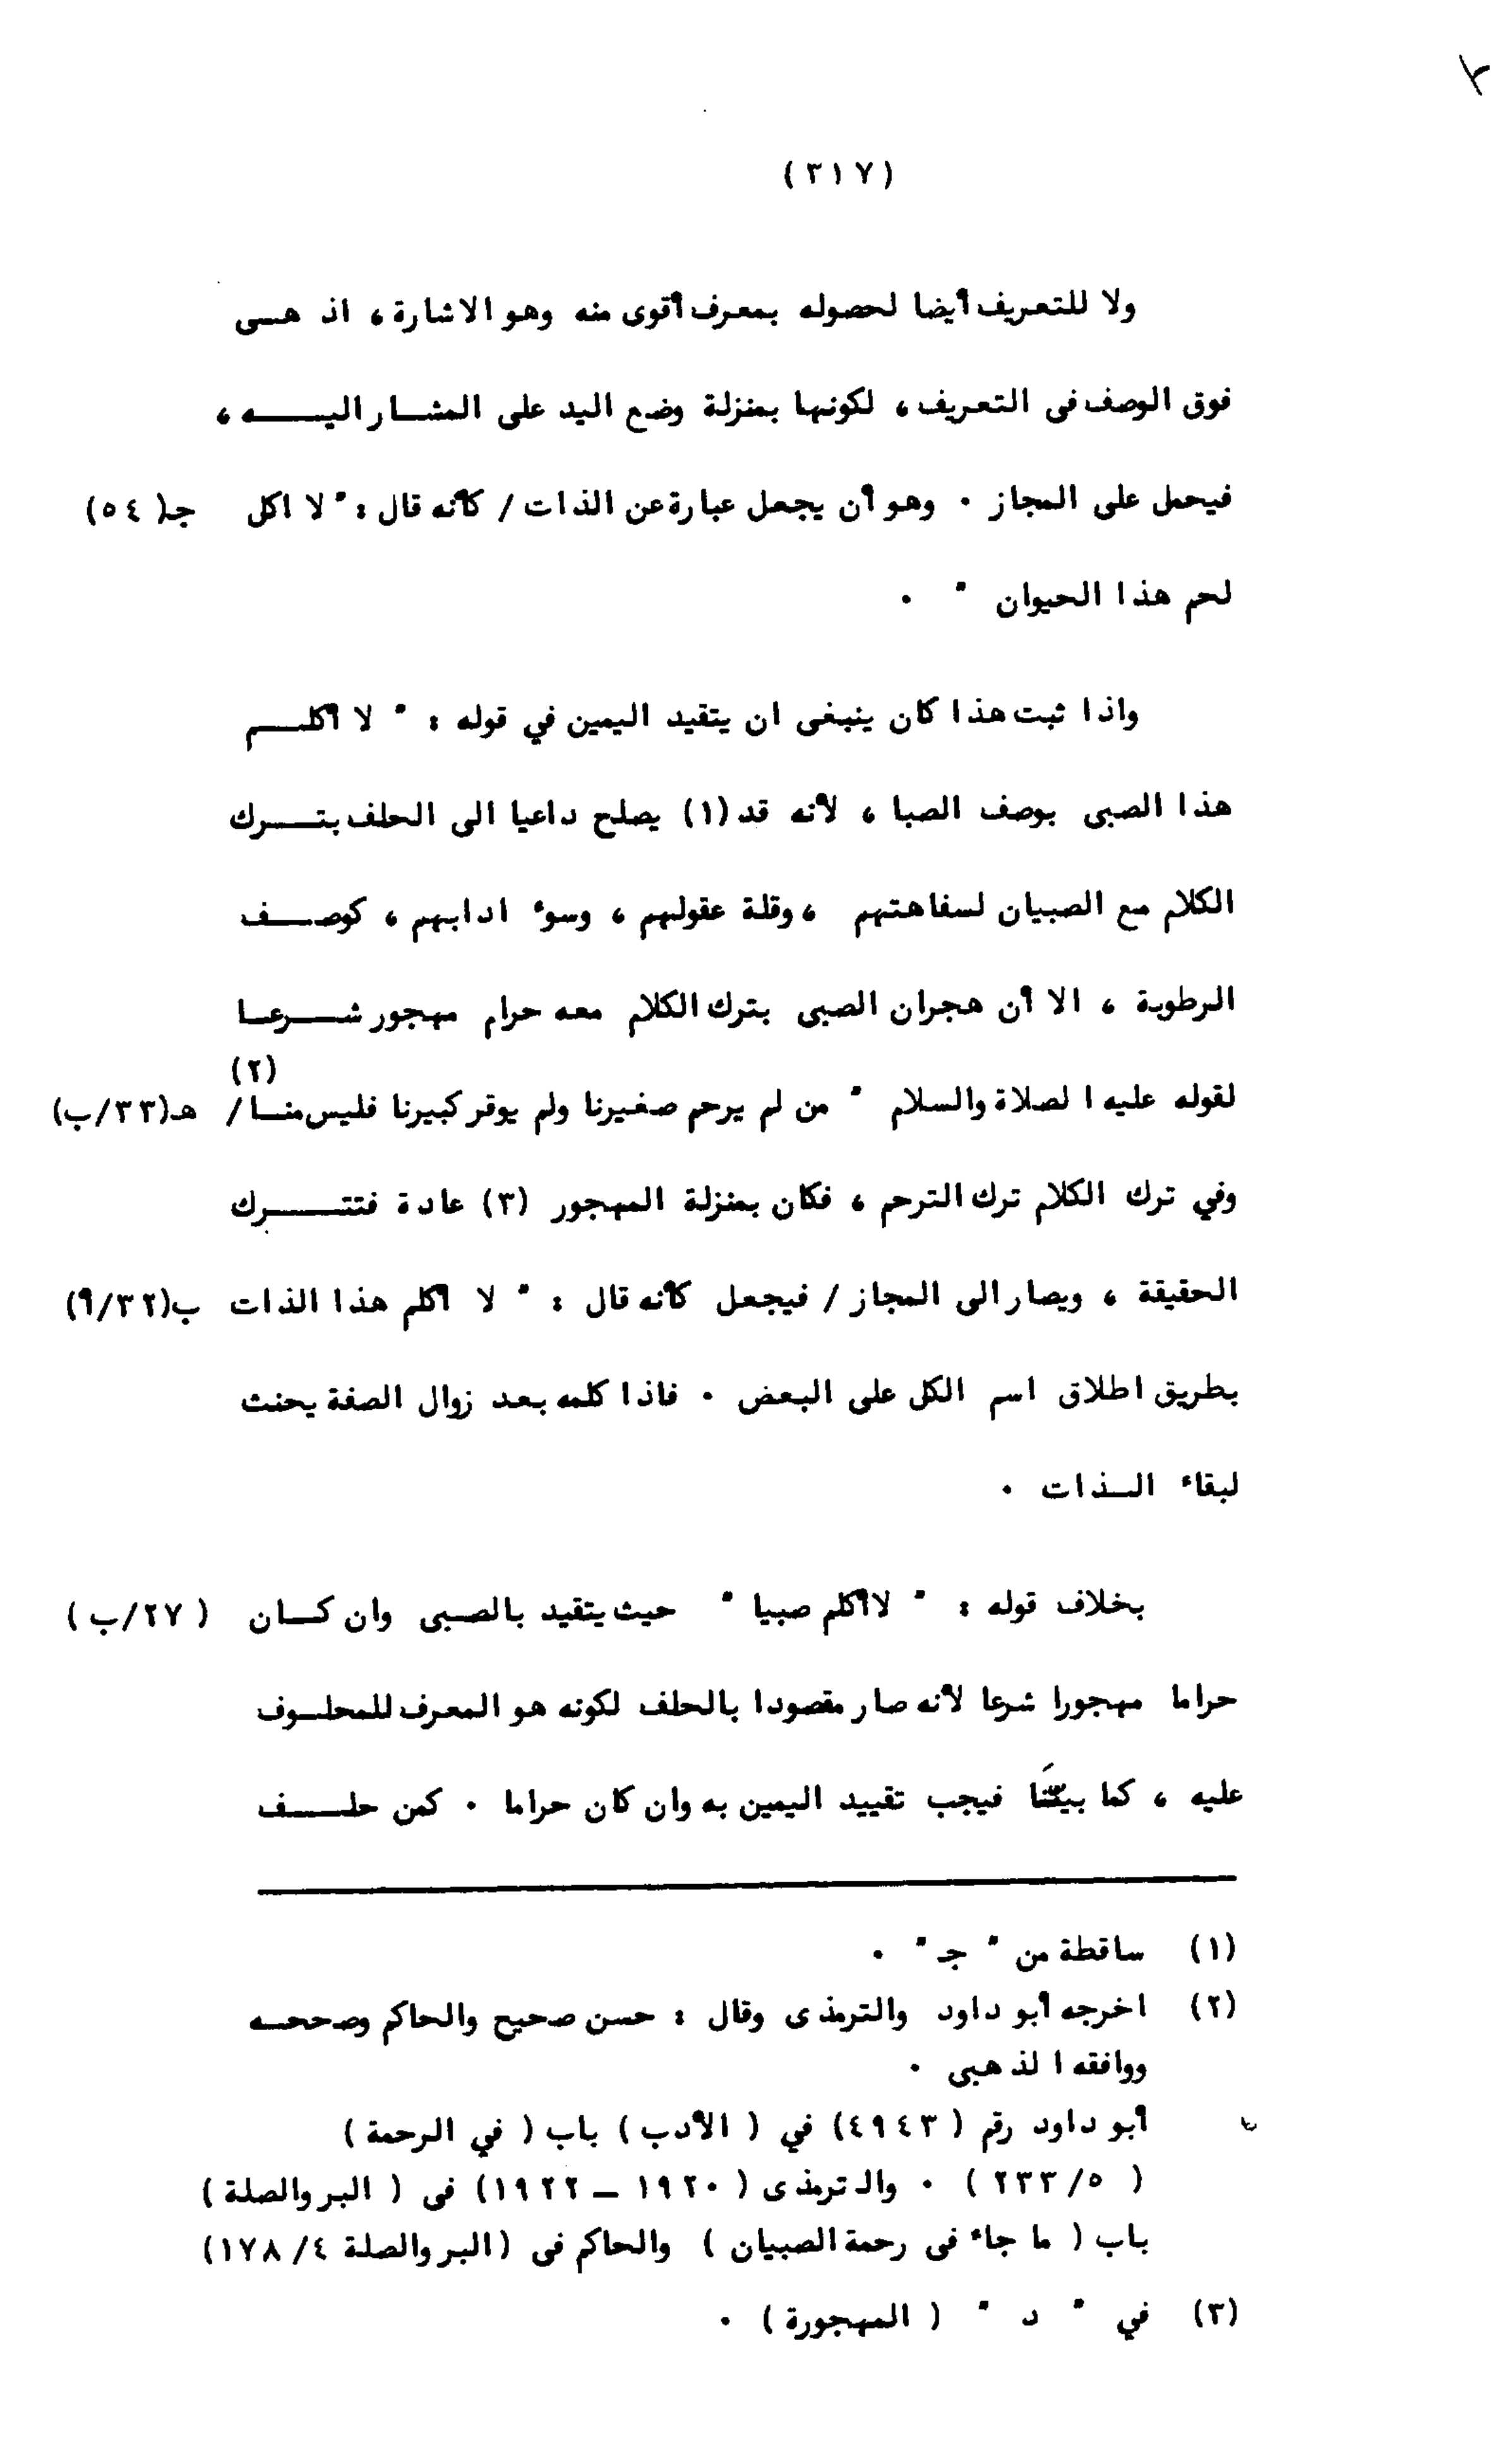 (٣١٧)
ولا للتعريف أيضا لحصوله بمعرف أقوى منه وهو الاشارة ، اذ هـى
فوق الوصف فى التعريف ، لكونها بمنزلة وضع اليد على المشار اليـه ،
فيحمل على المجاز . وهو أن يجعل عبارة عن الذات / كأنه قال : " لا اكل جـ(٥٤)
لحم هذا الحيوان " .
واذا ثبت هذا كان ينبغى ان يتقيد اليمين في قوله : " لا أكلـم
هذا الصبى بوصف الصبا ، لأنه قد (١) يصلح داعيا الى الحلف بتـرك
الكلام مع الصبيان لسفاهتهم ، وقلة عقولهم ، وسوء ادابهم ، كوصـف
الرطوبة ، الا أن هجران الصبى بترك الكلام معه حرام مهجور شـرعـا
لقوله عليه الصلاة والسلام " من لم يرحم صغيرنا ولم يوقر كبيرنا فليس منـا (٢) / هـ(٣٣/ب)
وفي ترك الكلام ترك الترحم ، فكان بمنزلة المهجور (٣) عادة فتتـرك
الحقيقة ، ويصار الى المجاز / فيجعل كأنه قال : " لا أكلم هذا الذات ب(٣٢/أ)
بطريق اطلاق اسم الكل على البعض . فاذا كلمه بعد زوال الصفة يحنث
لبقاء الـذات .
بخلاف قوله : " لا أكلم صبيا " حيث يتقيد بالصبى وان كـان (٢٧/ب)
حراما مهجورا شرعا لأنه صار مقصودا بالحلف لكونه هو المعرف للمحلـوف
عليه ، كما بيّنَّا فيجب تقييد اليمين به وان كان حراما . كمن حلـف
(١) ساقطة من " جـ " .
(٢) اخرجه أبو داود والترمذى وقال : حسن صحيح والحاكم وصححـه
ووافقه الذهبى .
أبو داود رقم (٤٩٤٣) في ( الأدب ) باب ( في الرحمة )
( ٢٣٣/٥ ) . والترمذى ( ١٩٢٠ ــ ١٩٢٢) فى ( البر والصلة )
باب ( ما جاء فى رحمة الصبيان ) والحاكم فى (البر والصلة ١٧٨/٤)
(٣) في " د " ( المهجورة ) .